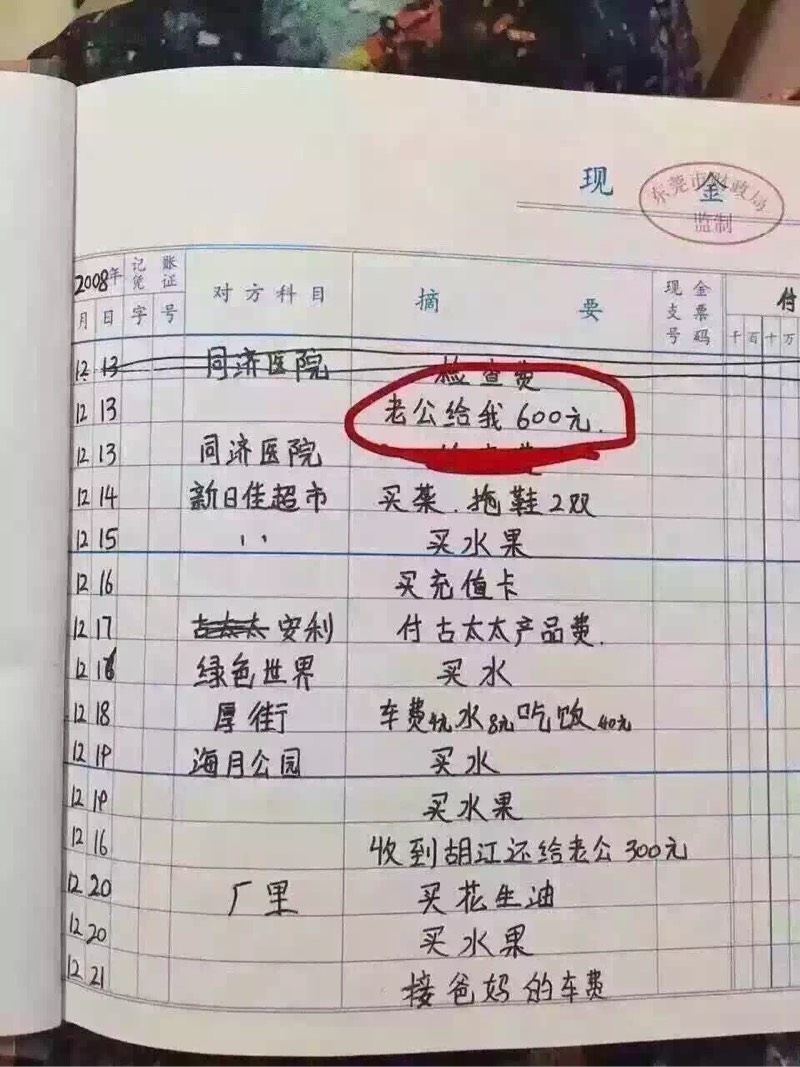 现 金
东莞市财政局
监制
2008年 记账凭证 对方科目 摘要 现金支票号码 付
月 日 字 号 千 百 十 万
12 13 同济医院 检查费
12 13 老公给我600元.
12 13 同济医院 检查费
12 14 新日佳超市 买菜.拖鞋2双
12 15 〃 买水果
12 16 买充值卡
12 17 古太太 安利 付古太太产品费.
12 18 绿色世界 买水
12 18 厚街 车费4元水8元吃饭40元
12 19 海月公园 买水
12 19 买水果
12 16 收到胡江还给老公300元
12 20 厂里 买花生油
12 20 买水果
12 21 接爸妈的车费